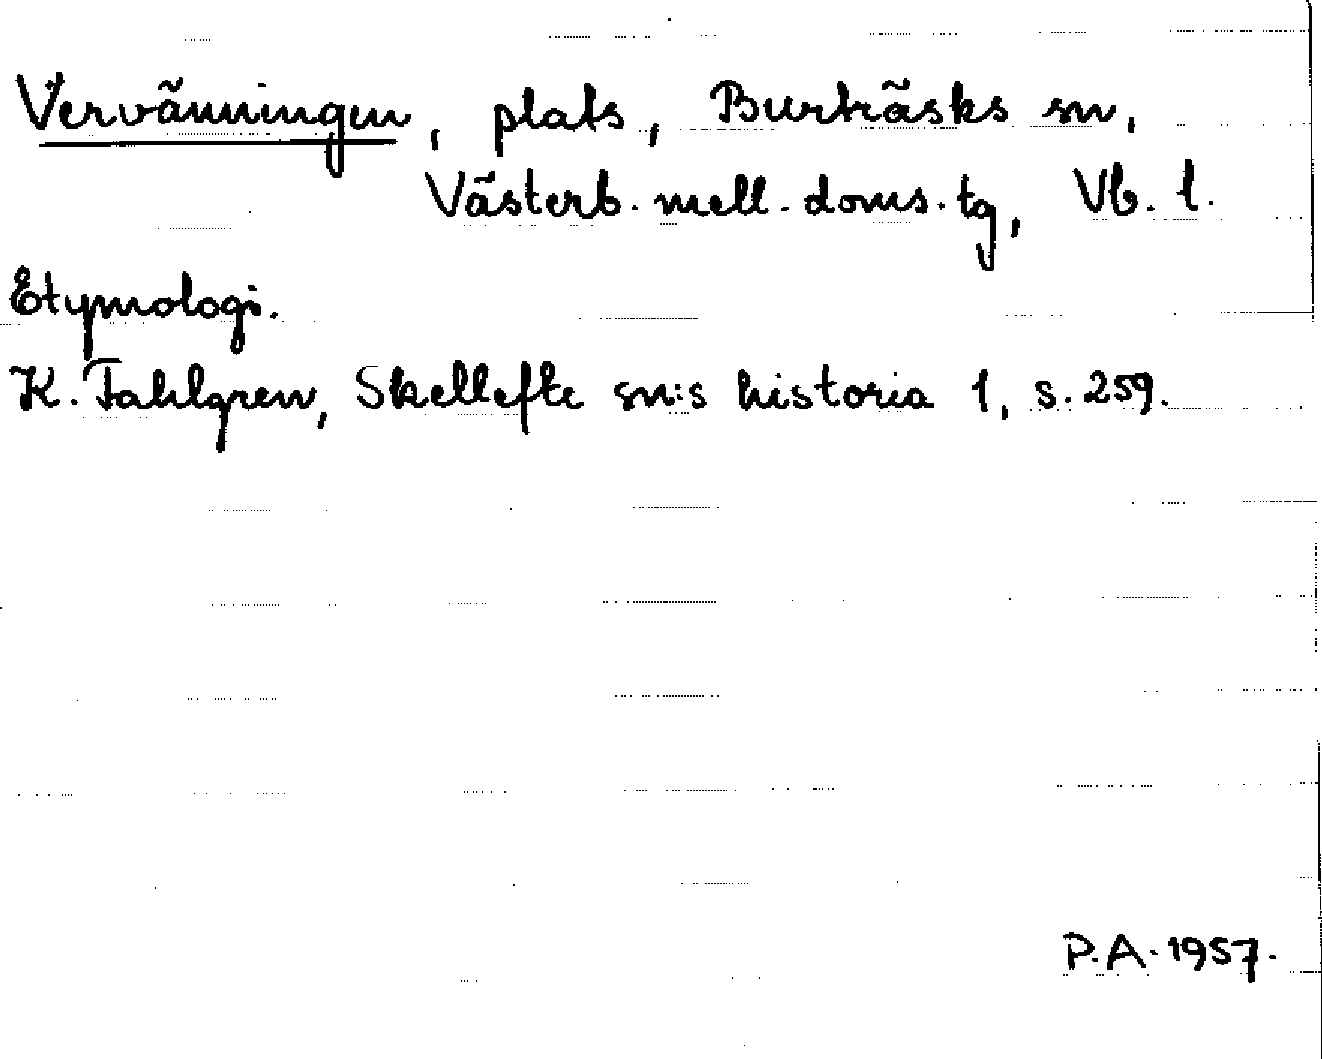 Vervänningen, plats, Burträsks sn,
Västerb. mell. doms. tg, Vb. l.
Etymologi.
K. Fahlgren, Skellefte sn:s historia 1, s. 259.
P.A. 1957.